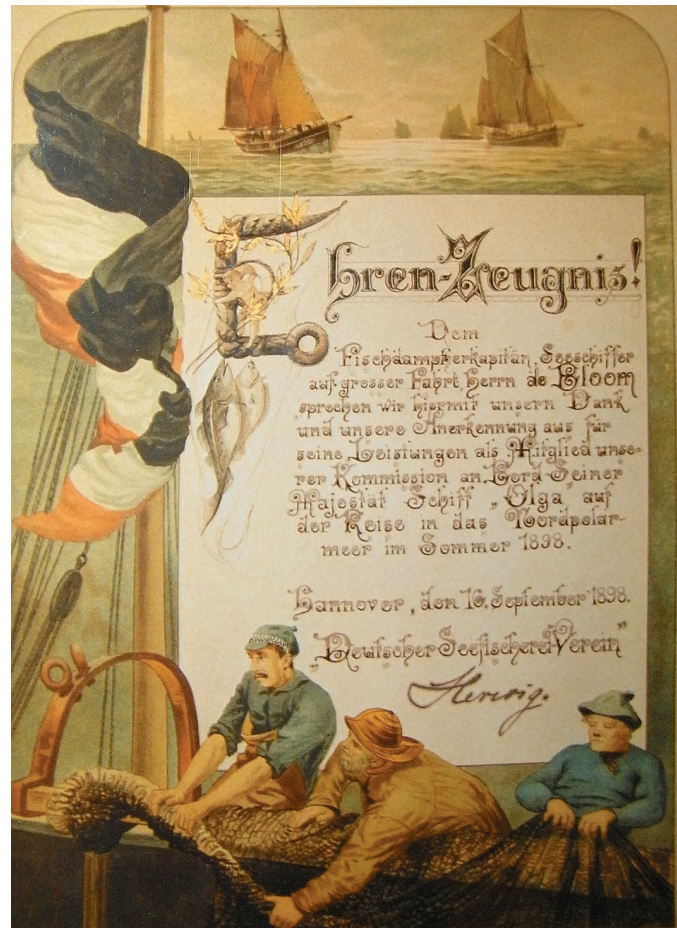 Ehren-Zeugnis!
Dem
Fischdampferkapitän, Seeschiffer
auf grosser Fahrt Herrn de Bloom
sprechen wir hiermit unsern Dank
und unsere Anerkennung aus für
seine Leistungen als Mitglied unse-
rer Kommission an Bord Seiner
Majestät Schiff „Olga" auf
der Reise in das Nordpolar-
meer im Sommer 1898.
Hannover, den 16. September 1898.
„Deutscher Seefischerei-Verein"
Herwig.